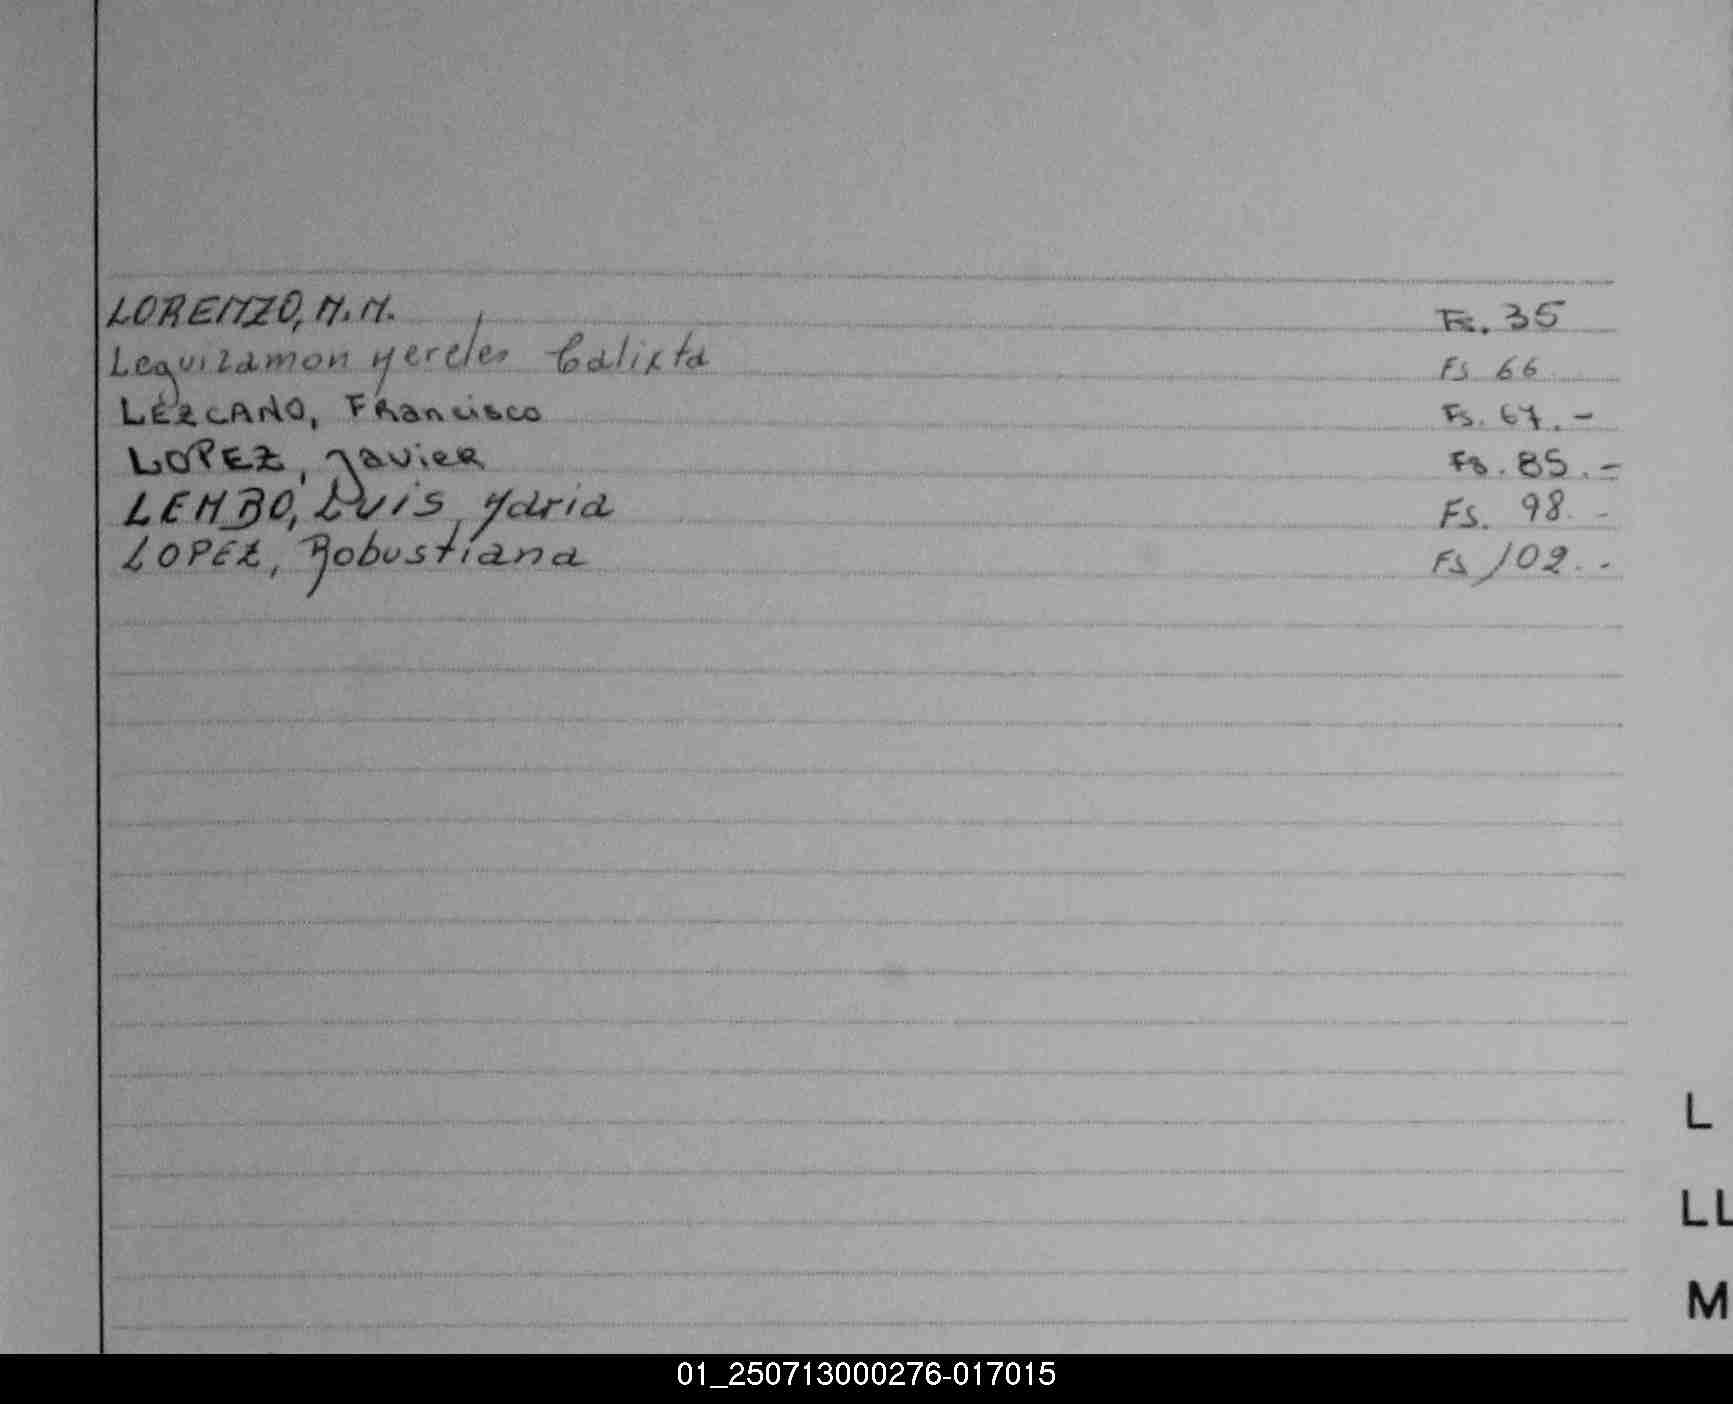 LORENZO, M.M. Fs. 35
Leguizamon Mereles Calixta Fs 66
LEZCANO, FRancisco Fs. 67.-
LOPEZ, JavieR Fs. 85.-
LEMBO, LUIS Maria Fs. 98.-
LOPEZ, Robustiana Fs 102.-
L
LL
M
01_250713000276-017015